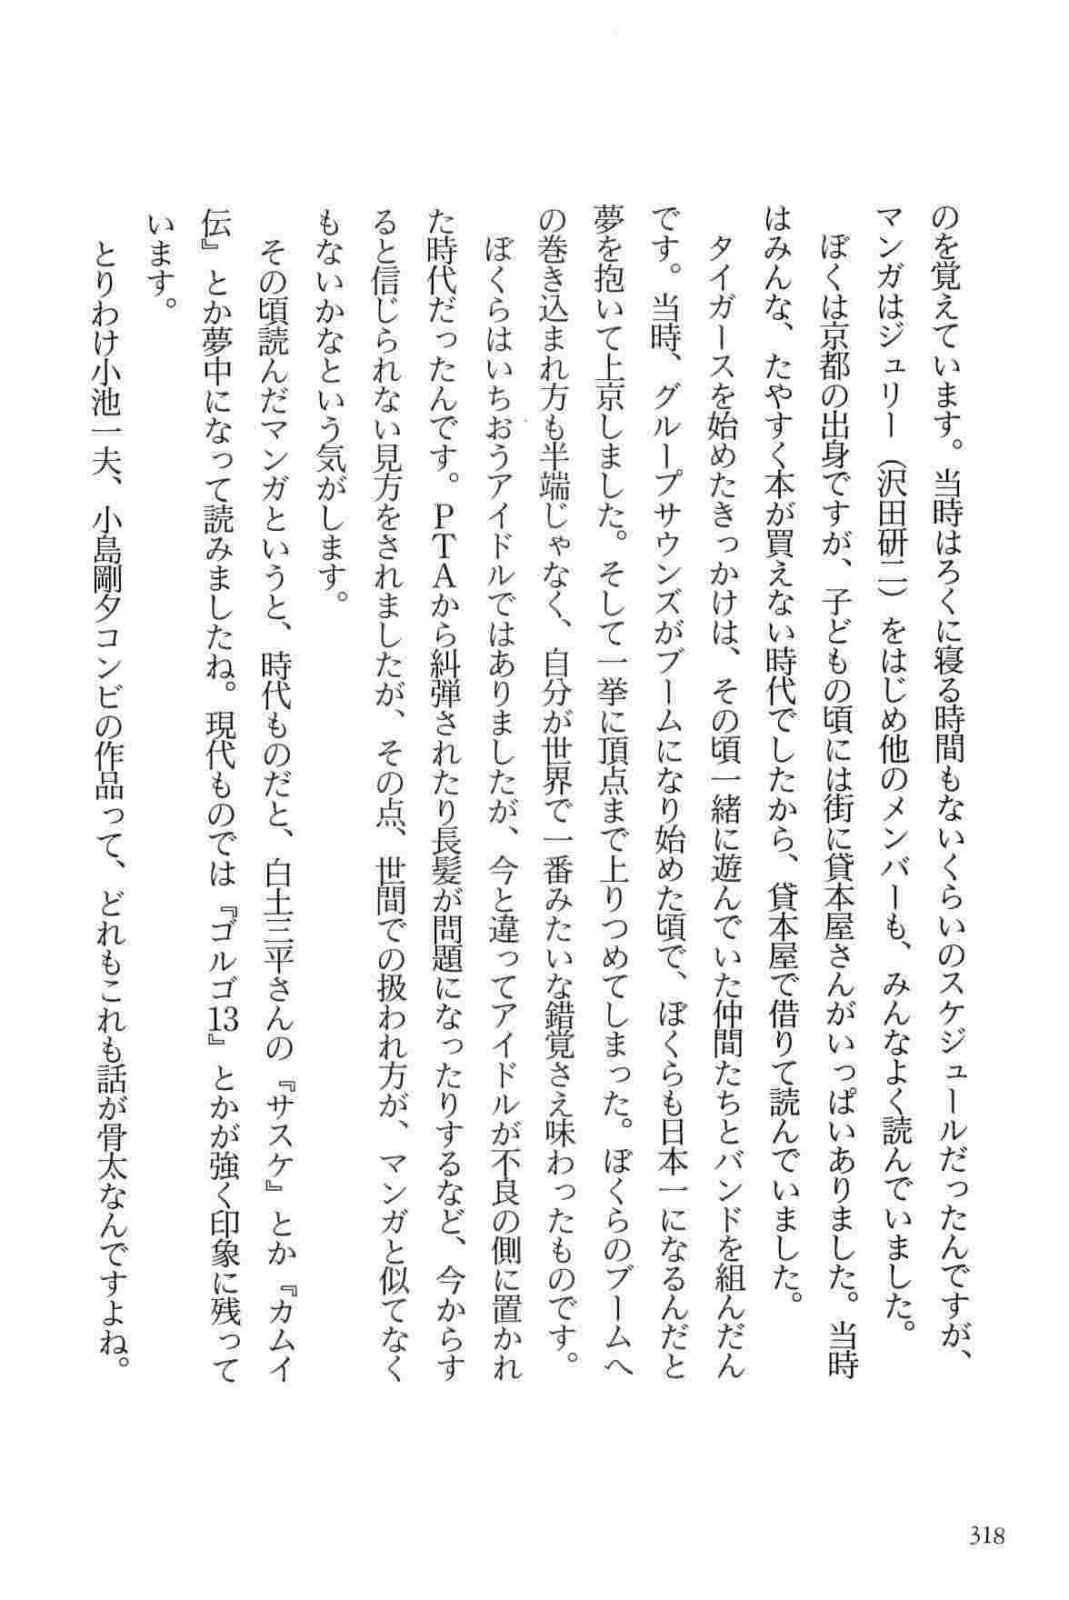 のを覚えています。当時はろくに寝る時間もないくらいのスケジュールだったんですが、
マンガはジュリー（沢田研二）をはじめ他のメンバーも、みんなよく読んでいました。
ぼくは京都の出身ですが、子どもの頃には街に貸本屋さんがいっぱいありました。当時
はみんな、たやすく本が買えない時代でしたから、貸本屋で借りて読んでいました。
タイガースを始めたきっかけは、その頃一緒に遊んでいた仲間たちとバンドを組んだん
です。当時、グループサウンズがブームになり始めた頃で、ぼくらも日本一になるんだと
夢を抱いて上京しました。そして一挙に頂点まで上りつめてしまった。ぼくらのブームへ
の巻き込まれ方も半端じゃなく、自分が世界で一番みたいな錯覚さえ味わったものです。
ぼくらはいちおうアイドルではありましたが、今と違ってアイドルが不良の側に置かれ
た時代だったんです。ＰＴＡから糾弾されたり長髪が問題になったりするなど、今からす
ると信じられない見方をされましたが、その点、世間での扱われ方が、マンガと似てなく
もないかなという気がします。
その頃読んだマンガというと、時代ものだと、白土三平さんの『サスケ』とか『カムイ
伝』とか夢中になって読みましたね。現代ものでは『ゴルゴ13』とかが強く印象に残って
います。
とりわけ小池一夫、小島剛夕コンビの作品って、どれもこれも話が骨太なんですよね。
318